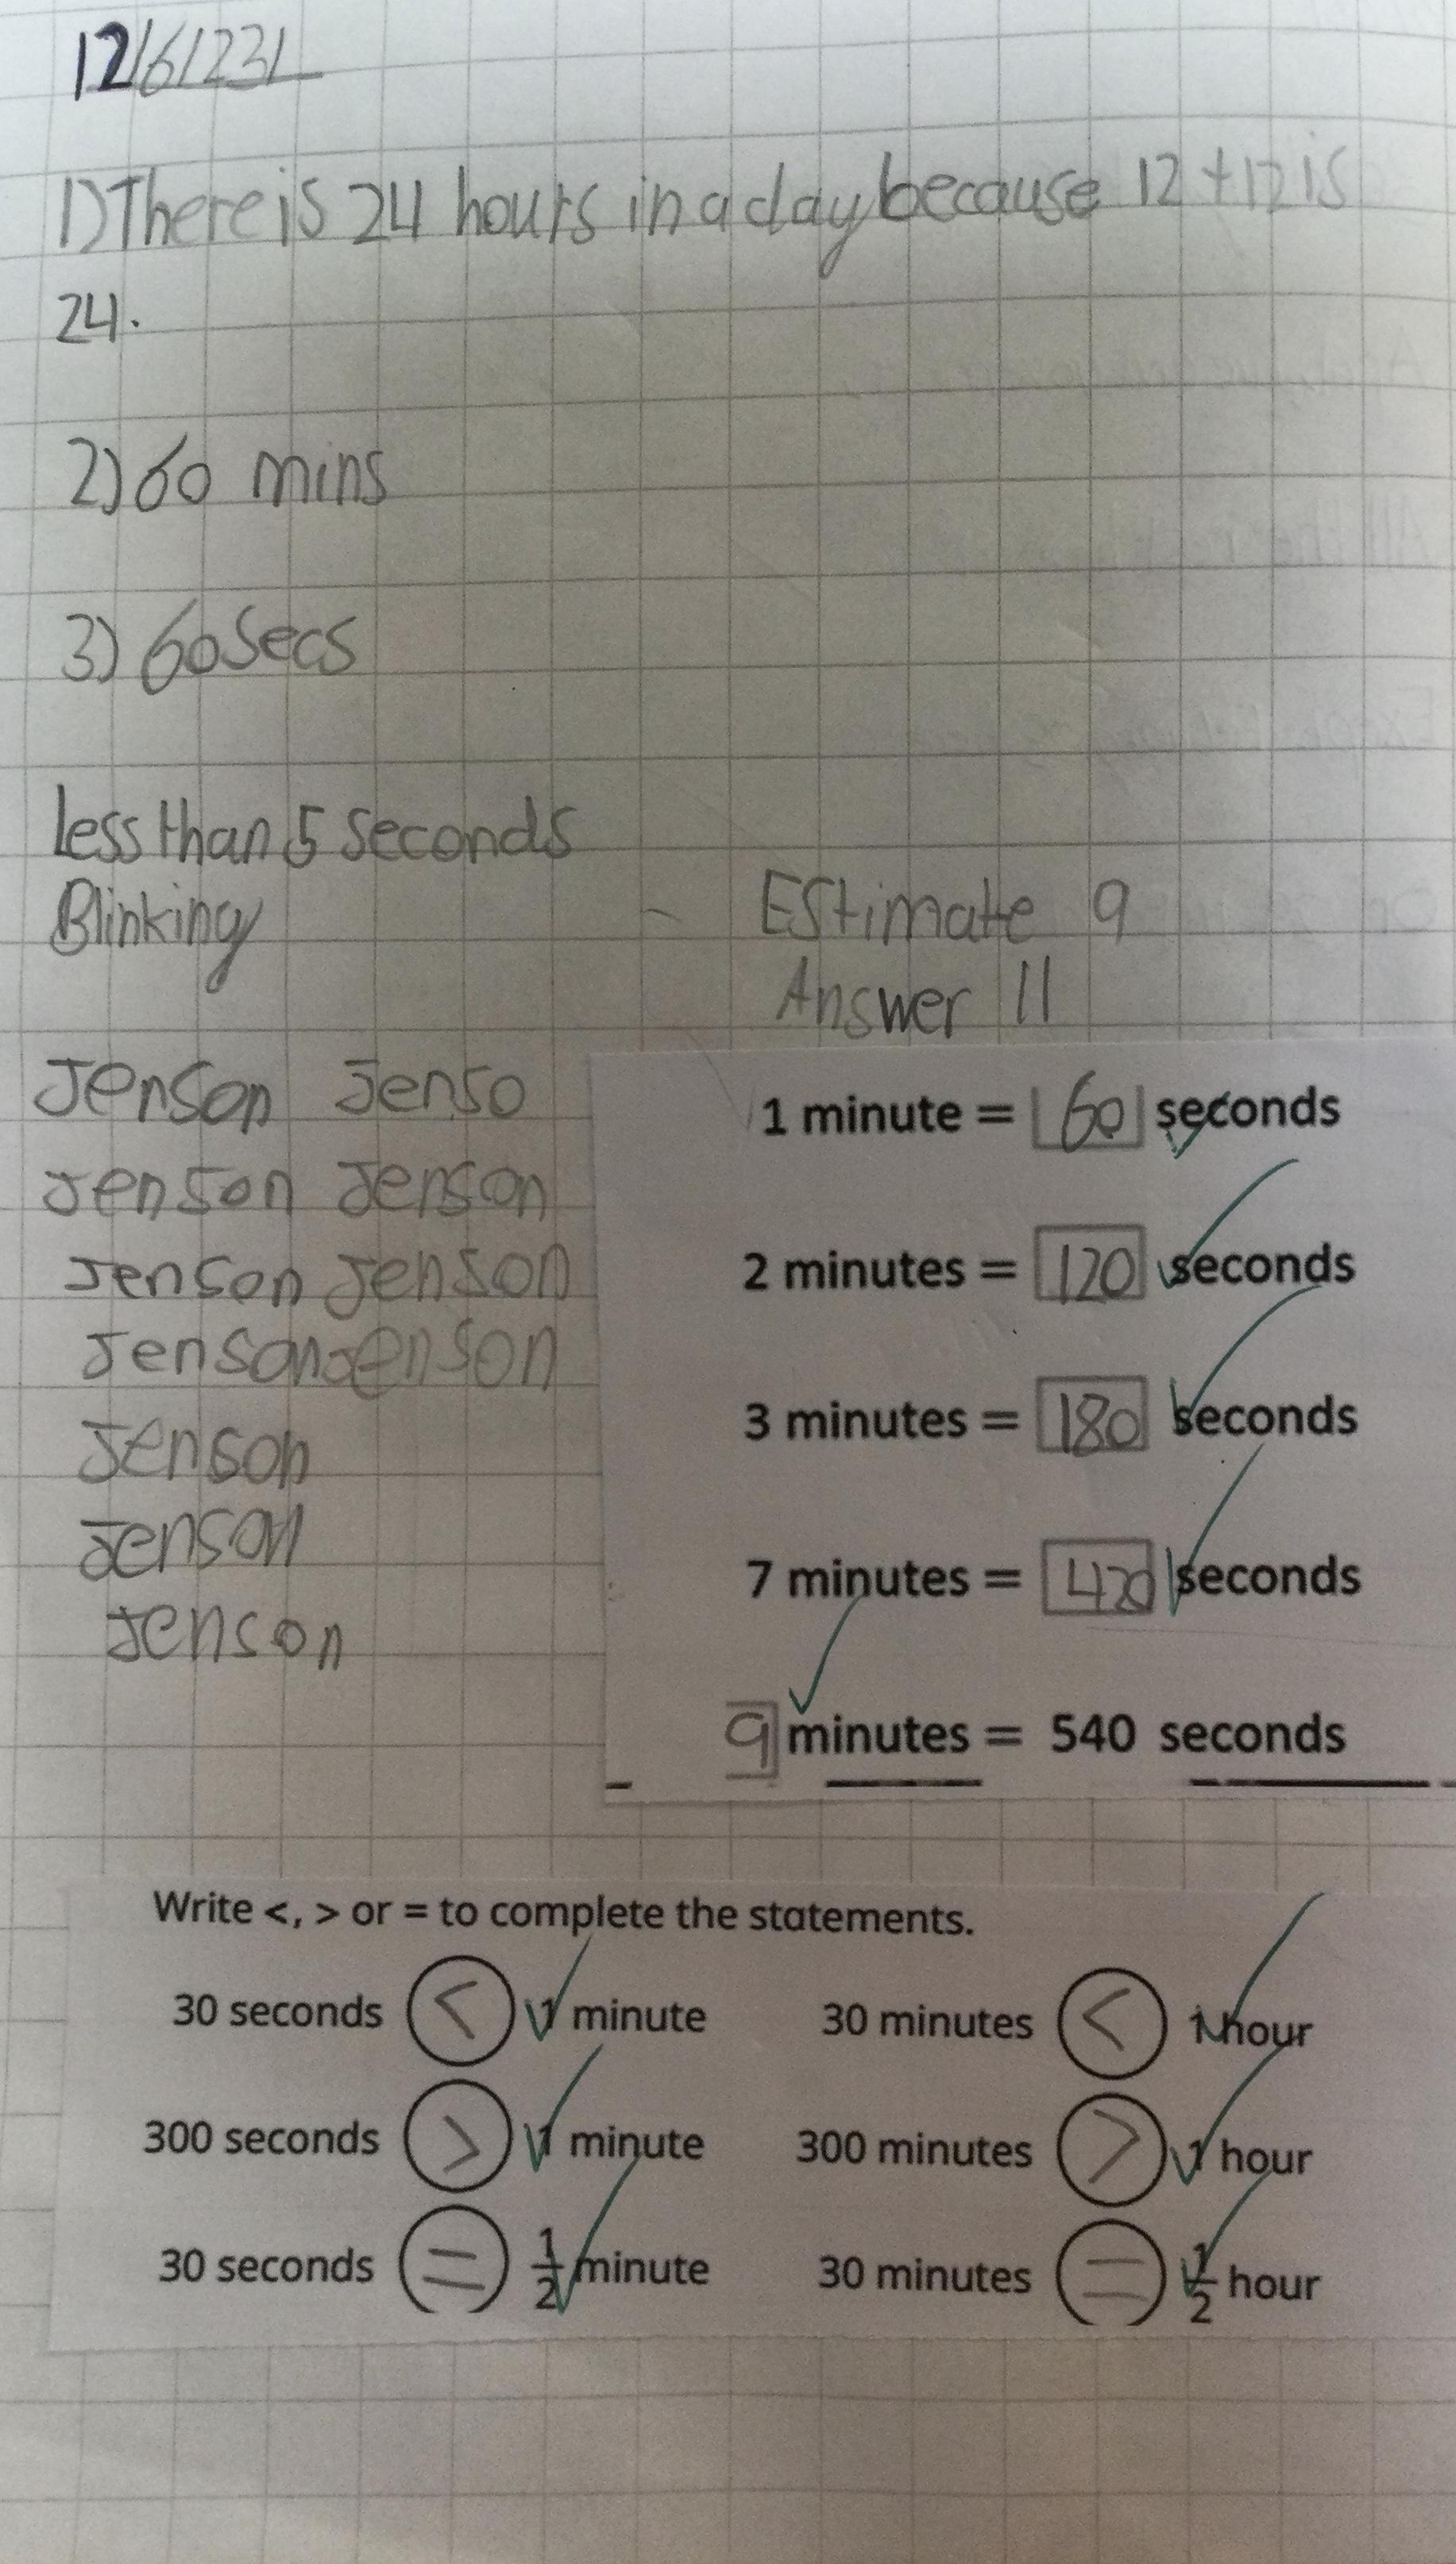 12/6/23
1) There is 24 hours in a day because 12 + 12 is
24.
2) 60 mins
3) 60 Secs
less than 5 seconds
Blinking
Estimate 9
Answer 11
Jenson Jenso
Jenson Jenson
Jenson Jenson
Jenson Jenson
Jenson
Jenson
Jenson
1 minute = 60 seconds
2 minutes = 120 seconds
3 minutes = 180 seconds
7 minutes = 420 seconds
9 minutes = 540 seconds
Write <, > or = to complete the statements.
30 seconds < 1 minute
30 minutes < 1 hour
300 seconds > 1 minute
300 minutes > 1 hour
30 seconds = 1/2 minute
30 minutes = 1/2 hour